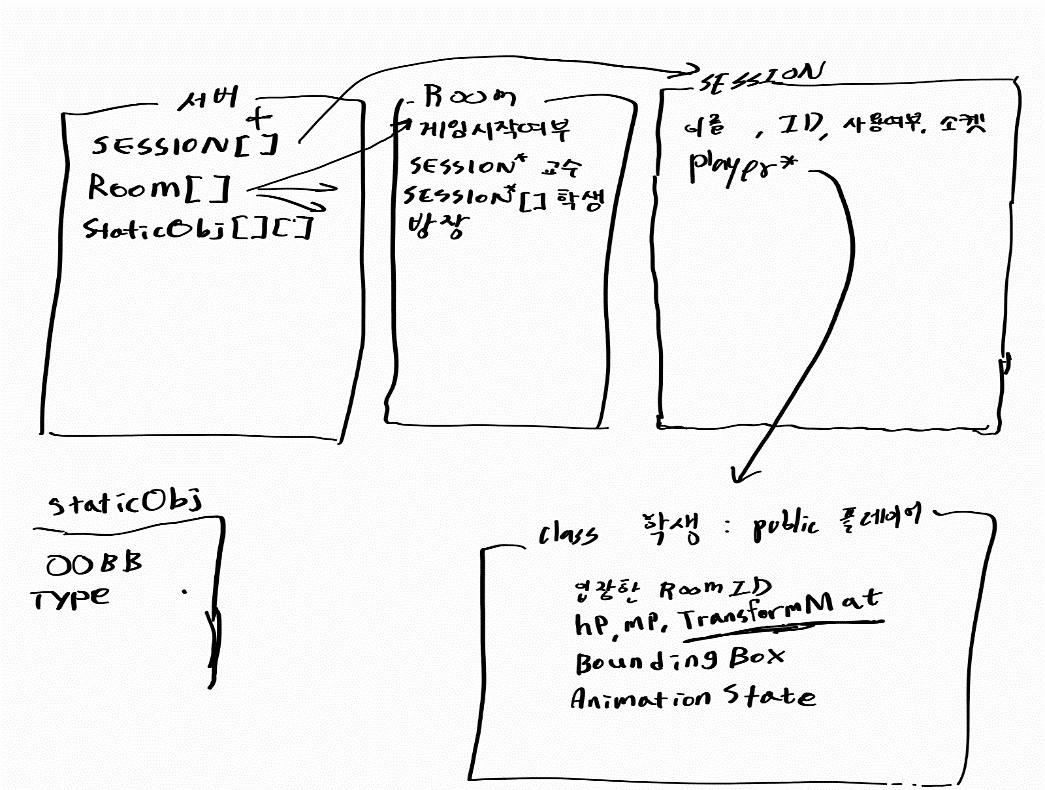 서버
+
SESSION[]
Room[]
StaticObj[][]
Room
게임시작여부
SESSION* 교수
SESSION*[] 학생
방장
SESSION
이름, ID, 사용여부, 소켓
player*
staticObj
OOBB
TYPE
class 학생 : public 플레이어
입장한 RoomID
hP, MP, TransformMat
Bounding Box
Animation State